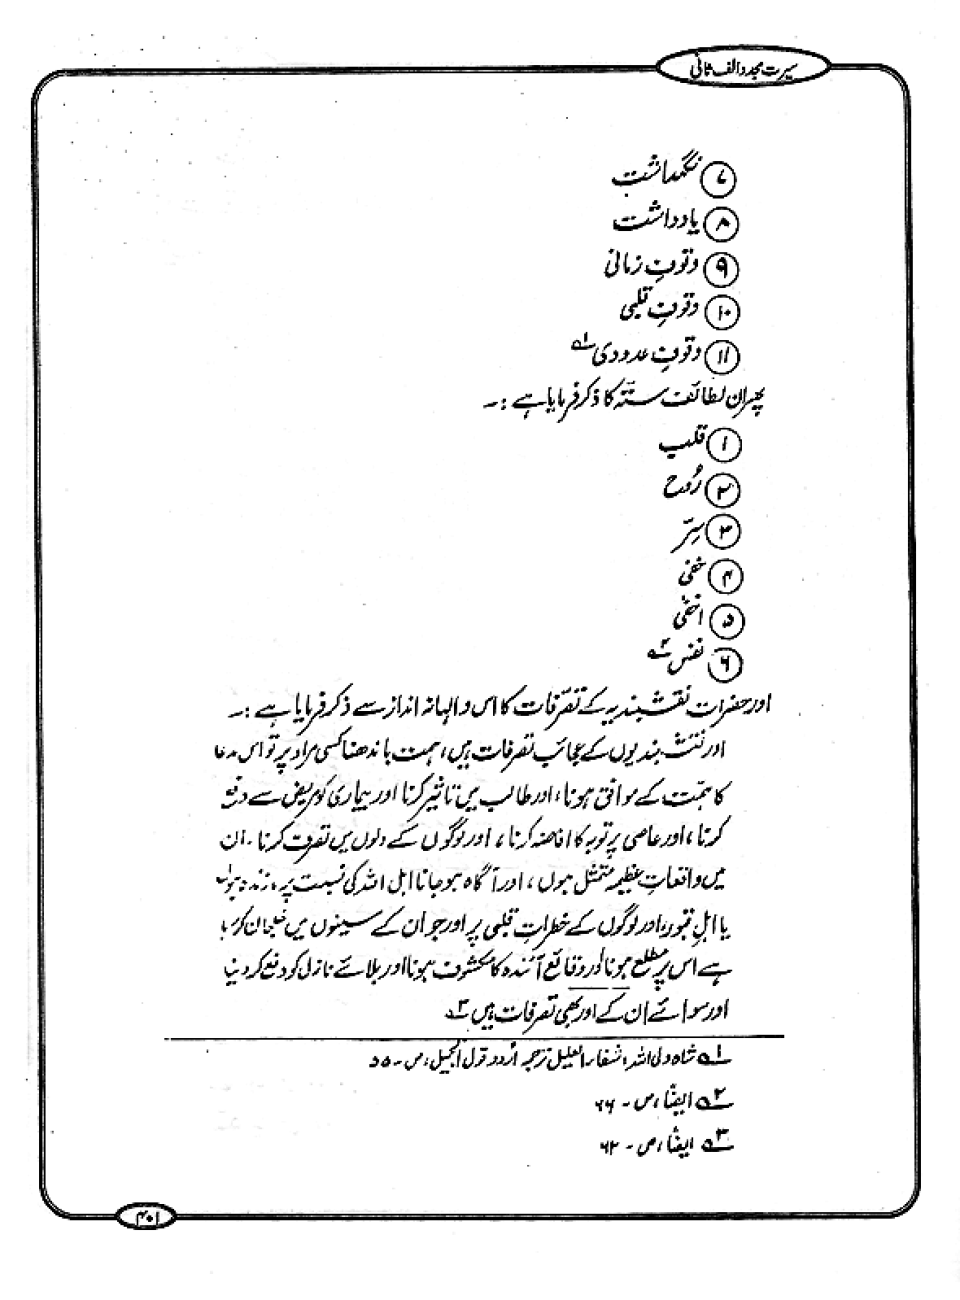 سیرت مجدد الف ثانی
۷ نگہداشت
۸ یادداشت
۹ وقوفِ زمانی
۱۰ وقوفِ قلبی
۱۱ وقوفِ عددی ۱؎
پھر ان لطائف ستّہ کا ذکر فرمایا ہے :۔
۱ قلب
۲ رُوح
۳ سِرّ
۴ خفی
۵ اخفٰی
۶ نفس ۲؎
اور حضرات نقشبندیہ کے تصرّفات کا اس والہانہ انداز سے ذکر فرمایا ہے :۔
اور نقشبندیوں کے عجائب تصرفات ہیں، ہمت باندھنا کسی مراد پر تو اس مدعا
کا ہمّت کے موافق ہونا، اور طالب میں تاثیر کرنا اور بیماری کو مریض سے دفع
کرنا، اور عاصی پر توبہ کا افاضہ کرنا، اور لوگوں کے دلوں میں تصرف کرنا۔ ان
میں واقعاتِ عظیمہ متمثل ہوں، اور آگاہ ہو جانا اہل اللہ کی نسبت پر، زندہ ہوں
یا اہلِ قبور، اور لوگوں کے خطراتِ قلبی پر اور جو ان کے سینوں میں خلجان کر رہا
ہے اس پر مطلع ہونا اور وقائع آئندہ کا مکشوف ہونا اور بلائے نازل کو دفع کر دینا
اور سوائے ان کے اور بھی تصرفات ہیں ۳؎
۱؎ شاہ ولی اللہ، شفاء العلیل ترجمہ اُردو قول الجمیل، ص۔ ۵۵
۲؎ ایضًا، ص۔ ۶۶
۳؎ ایضًا، ص۔ ۶۲
۴۰۱